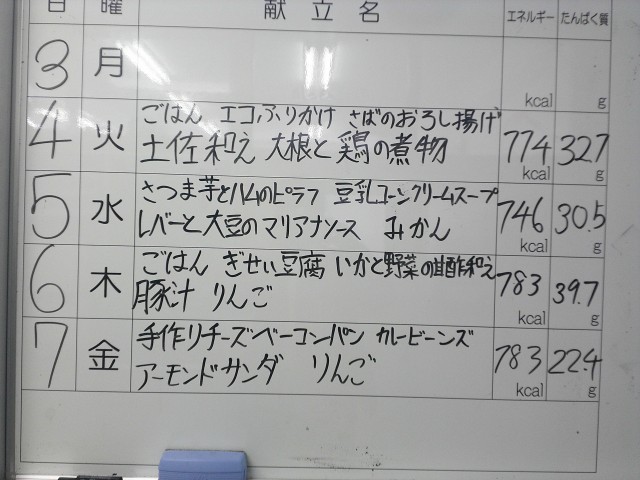 日 曜 献立名 エネルギー たんぱく質
3 月 kcal g
4 火 ごはん エコふりかけ さばのおろし揚げ
土佐和え 大根と鶏の煮物 774 kcal 32.7 g
5 水 さつま芋とハムのピラフ 豆乳コーンクリームスープ
レバーと大豆のマリアナソース みかん 746 kcal 30.5 g
6 木 ごはん ぎせい豆腐 いかと野菜の甘酢和え
豚汁 りんご 783 kcal 39.7 g
7 金 手作りチーズベーコンパン カレービーンズ
アーモンドサンダ りんご 783 kcal 22.4 g